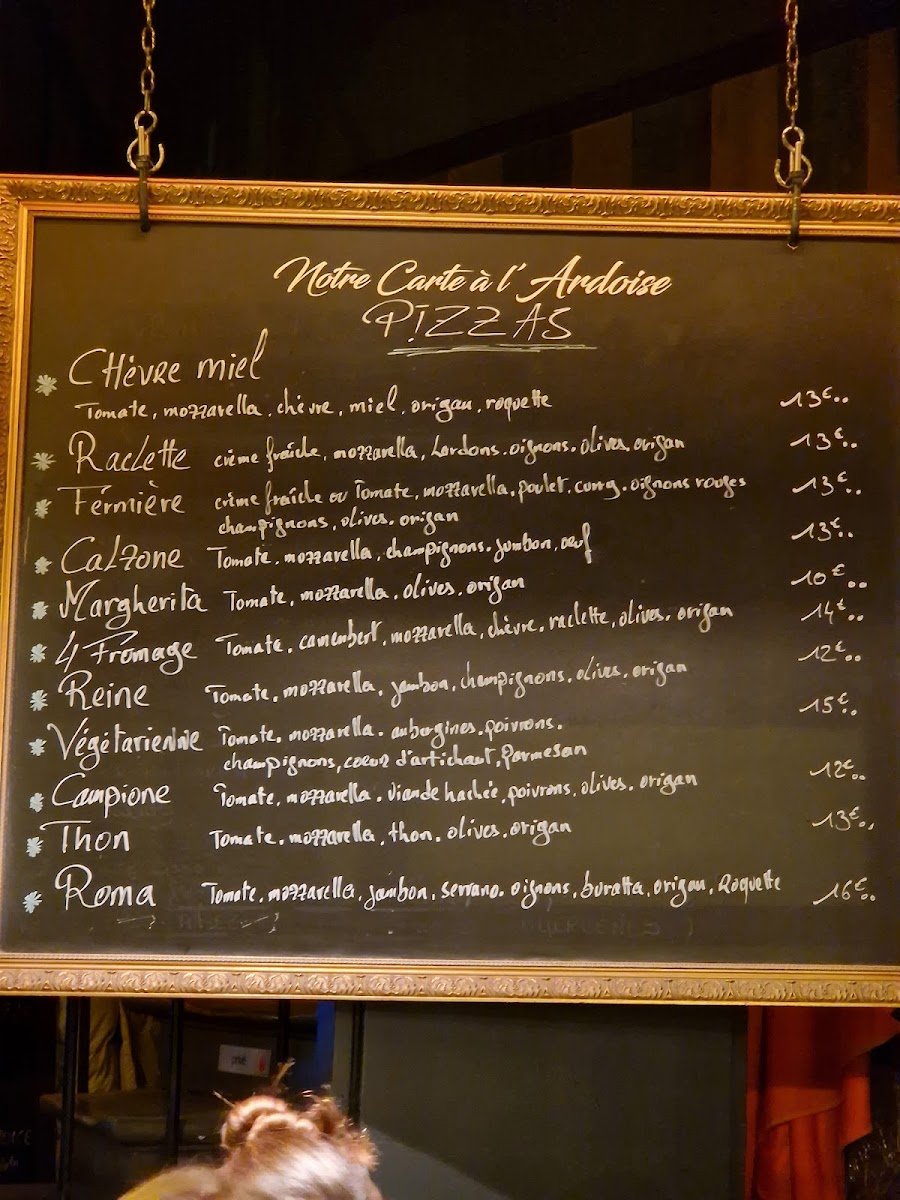 Notre Carte à l'Ardoise
PIZZAS
* CHèvre miel
Tomate, mozzarella, chèvre, miel, origan, roquette 13€..
* Raclette crème fraîche, mozzarella, Lardons, oignons, olives, origan 13€..
* Férmière crème fraîche ou Tomate, mozzarella, poulet, curry, oignons rouges 13€..
champignons, olives, origan
* Calzone Tomate, mozzarella, champignons, jambon, œuf 13€..
* Margherita Tomate, mozzarella, olives, origan 10€..
* 4 Fromage Tomate, camembert, mozzarella, chèvre, raclette, olives, origan 14€..
* Reine Tomate, mozzarella, jambon, champignons, olives, origan 12€..
* Végétarienne Tomate, mozzarella, aubergines, poivrons, 15€..
champignons, coeur d'artichaut, Parmesan
* Campione Tomate, mozzarella, viande hachée, poivrons, olives, origan 12€..
* Thon Tomate, mozzarella, thon, olives, origan 13€..
* Roma Tomate, mozzarella, jambon, serrano, oignons, buratta, origan, Roquette 16€..
privé